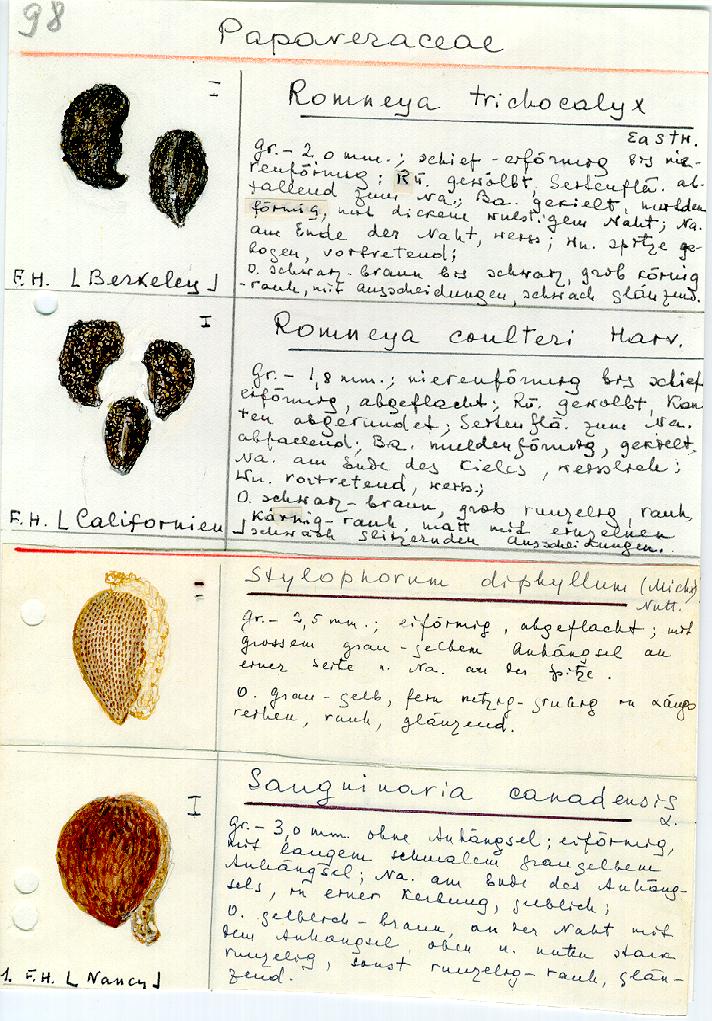 98
Papaveraceae
Romneya trichocalyx
Easth.
gr. - 2,0 mm.; schief-eiförmig bis nie-
renförmig; Rü. gewölbt, Seitenflä. ab-
fallend zum Na.; Ba. gekielt, mulden
förmig, mit dickem wulstigem Naht; Na.
am Ende der Naht, weiss; Wu. spitze ge-
bogen, vortretend;
O. schwarz-braun bis schwarz, grob körnig
-rauh, mit ausscheidungen, schwach glänzend.
F.H. [Berkeley]
Romneya coulteri Harv.
Gr. - 1,8 mm.; nierenförmig bis schief
eiförmig, abgeflacht; Rü. gewölbt, Kan
ten abgerundet; Seitenflä. zum Na.
abfallend; Ba. muldenförmig, gekielt,
Na. am Ende des Kieles, weisslich;
Wu. vortretend, weiss;
O. schwarz-braun, grob runzelig, rauh,
körnig-rauh, matt mit einzelnen
schwach glitzernden ausscheidungen.
F.H. [Californien]
Stylophorum diphyllum (Michx)
Nutt.
gr. - 2,5 mm.; eiförmig, abgeflacht; mit
grossem grau-gelbem Anhängsel an
einer Seite u. Na. an der Spitze.
O. grau-gelb, fein netzig-grubig in Längs
reihen, rauh, glänzend.
Sanguinaria canadensis
L.
gr. - 3,0 mm. ohne Anhängsel; eiförmig,
mit langem schmalem graugelbem
Anhängsel; Na. am Ende des Anhäng-
sels, in einer Kerbung, gelblich;
O. gelblich-braun, an der Naht mit
dem Anhängsel oben u. unten stark
runzelig, sonst runzelig-rauh, glän-
zend.
1. F.H. [Nancy]